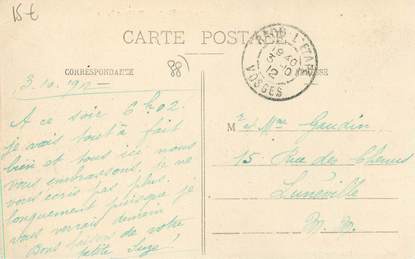 15€
CARTE POSTALE
RAON L'ETAPE
VOSGES
CORRESPONDANCE
88
3.10.912
A ce soir 6 h 02.
Je vais tout à fait
bien et tous ici nous
vous embrassons, je ne
vous écris pas plus
longuement puisque je
vous verrai demain
Bons baisers de votre
petite Suze!
Mr et Mme Gaudin
15 Rue des
Lunéville
M. M.